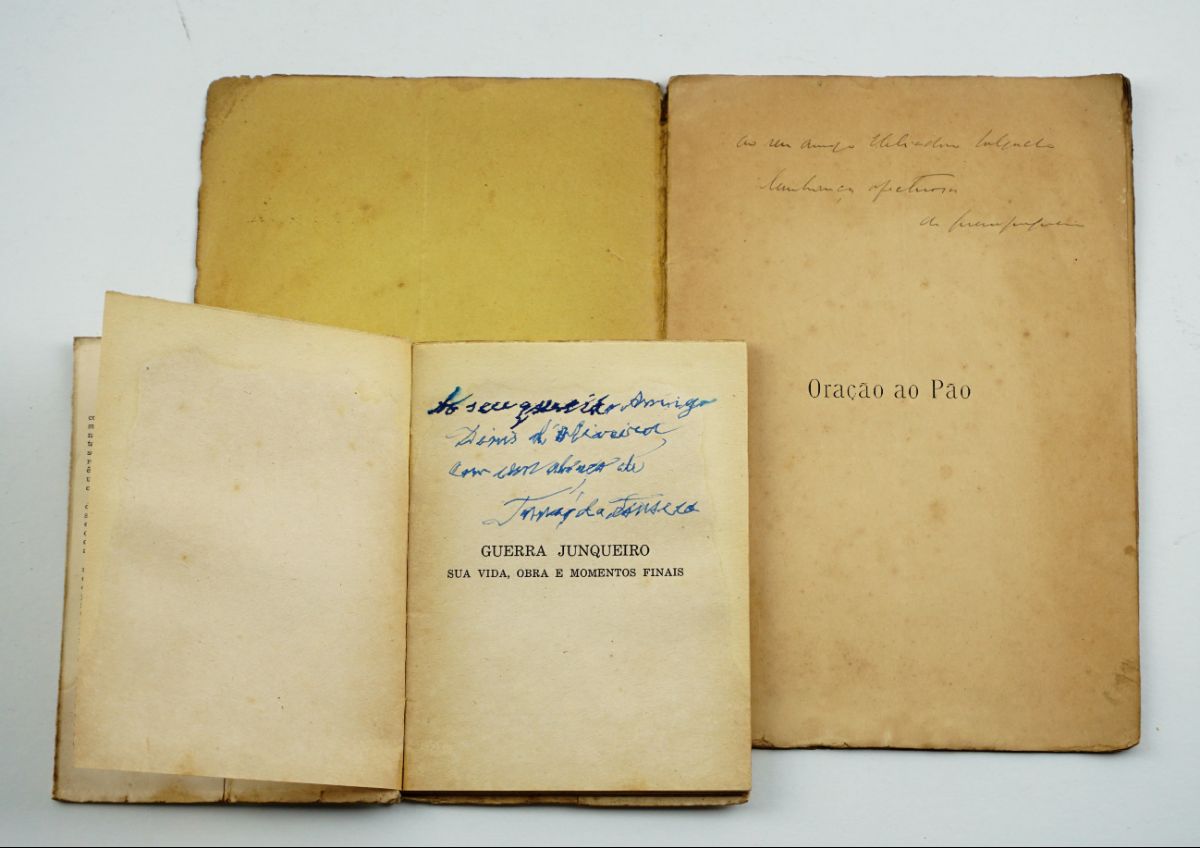 ao seu amigo Heliodoro Salgado
lembrança afectuosa
de Guerra Junqueiro
Oração ao Pão
Ao seu querido Amigo
Dinis d'Oliveira,
com um abraço de
Tomás da Fonseca
GUERRA JUNQUEIRO
SUA VIDA, OBRA E MOMENTOS FINAIS